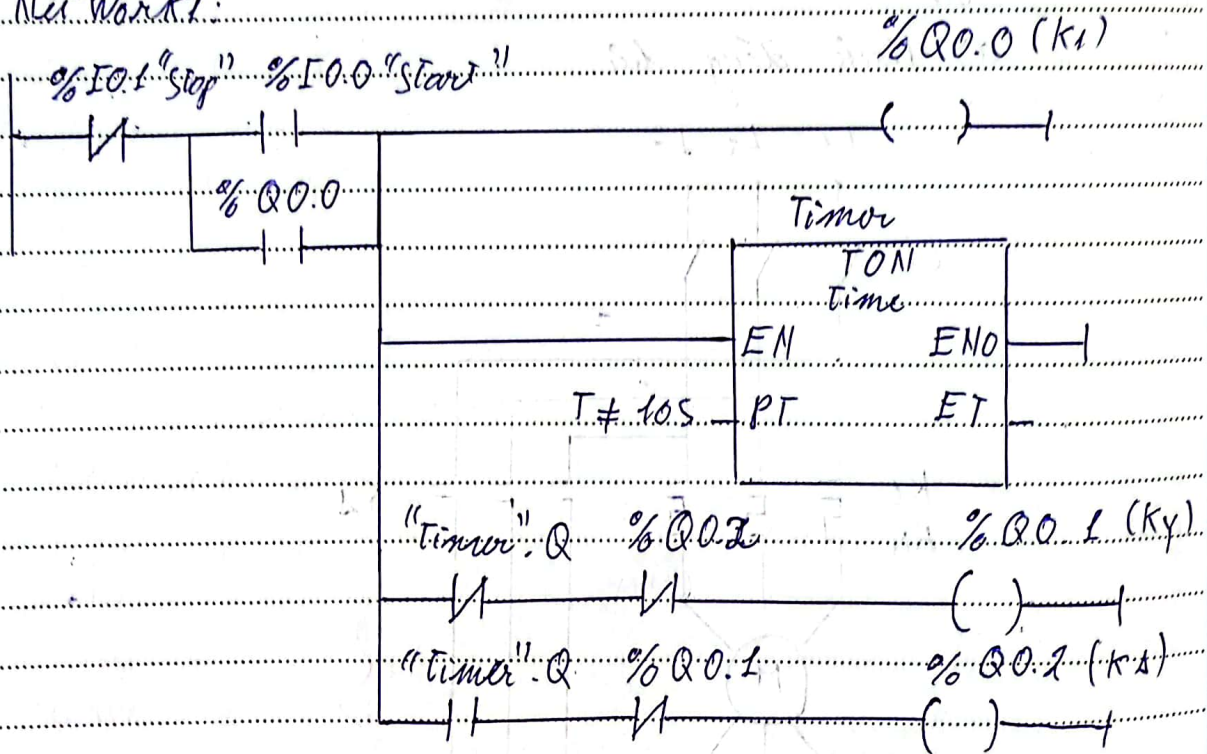 Net Work1:
%Q0.0 (K1)
%I0.1 "Stop" %I0.0 "Start"
( )
%Q0.0
Timer
TON
Time
EN ENO
T≠ 10S PT ET
"Timer".Q %Q0.2 %Q0.1 (KY)
( )
"Timer".Q %Q0.1 %Q0.2 (KΔ)
( )